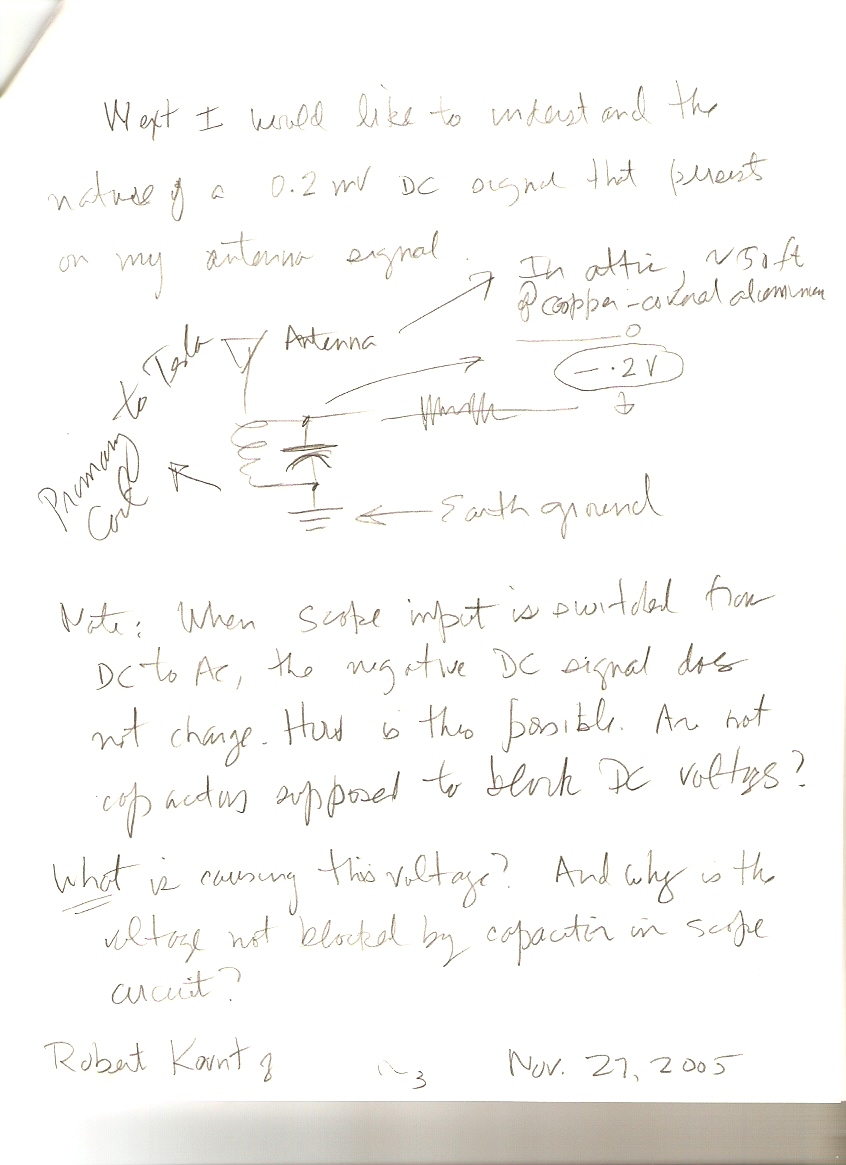 Next I would like to understand the
nature of a 0.2 mV DC signal that persists
on my antenna signal.
In attic, ~50 ft
of copper-covered aluminum
Antenna
-.2V
Primary to Tesla
Coil
Earth ground
Note: When scope input is switched from
DC to AC, the negative DC signal does
not change. How is this possible. Are not
capacitors supposed to block DC voltages?
What is causing this voltage? And why is the
voltage not blocked by capacitor in scope
circuit?
Robert
3
Nov. 27, 2005